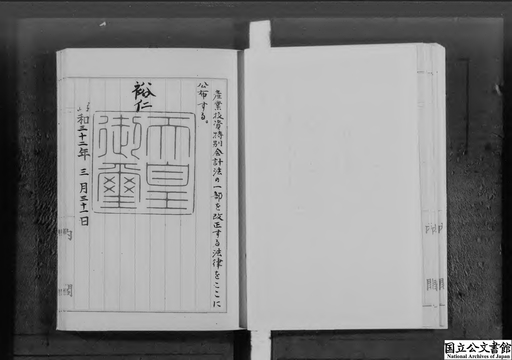 産業投資特別会計法の一部を改正する法律をここに
公布する。
裕仁
天皇
御璽
昭和三十二年三月三十一日
国立公文書館
National Archives of Japan